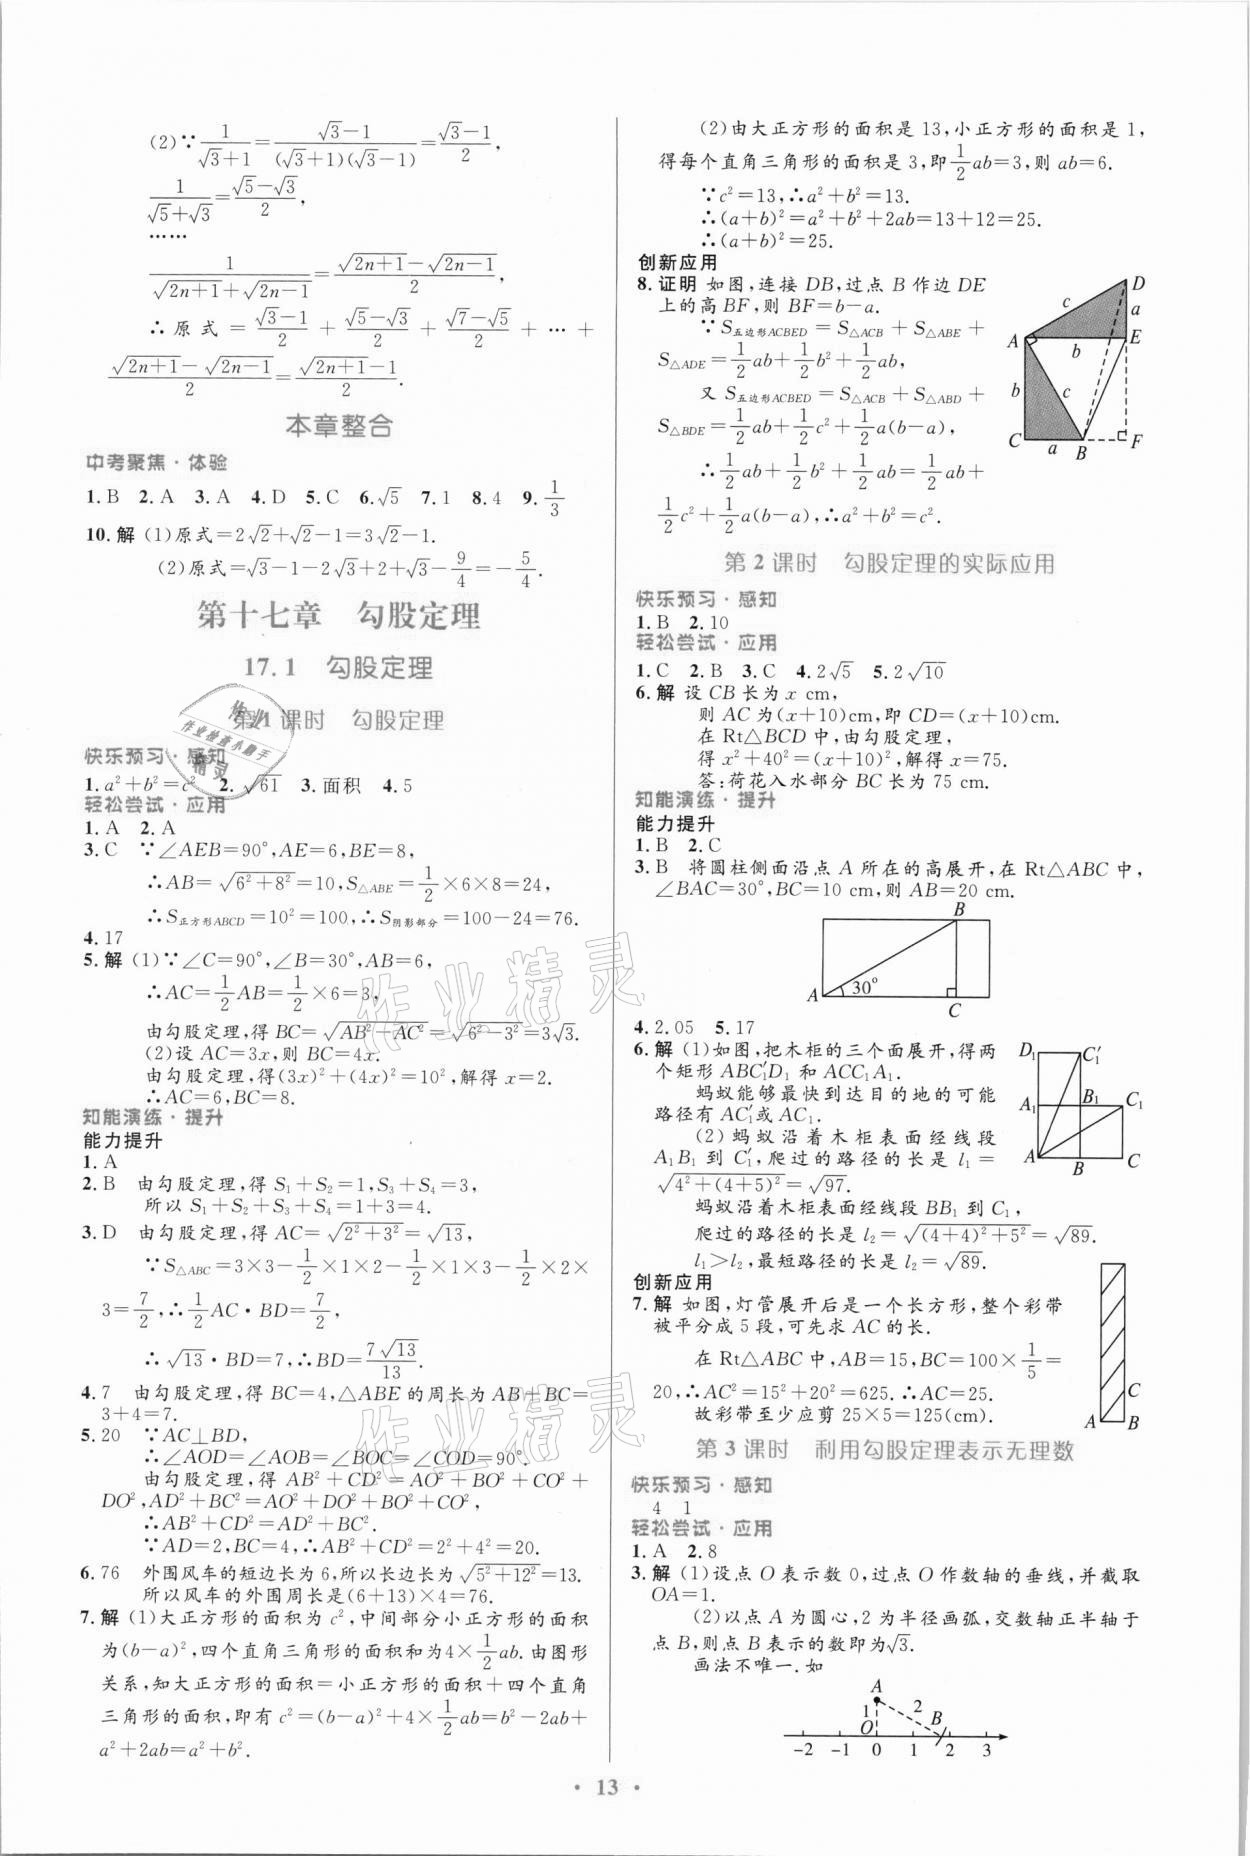 (2)∵1/(√3+1)=(√3-1)/((√3+1)(√3-1))=(√3-1)/2,
1/(√5+√3)=(√5-√3)/2,
……
1/(√(2n+1)+√(2n-1))=(√(2n+1)-√(2n-1))/2,
∴原式=(√3-1)/2+(√5-√3)/2+(√7-√5)/2+…+
(√(2n+1)-√(2n-1))/2=(√(2n+1)-1)/2.
本章整合
中考聚焦·体验
1.B 2.A 3.A 4.D 5.C 6.√5 7.1 8.4 9.1/3
10.解 (1)原式=2√2+√2-1=3√2-1.
(2)原式=√3-1-2√3+2+√3-9/4=-5/4.
第十七章 勾股定理
17.1 勾股定理
第1课时 勾股定理
快乐预习·感知
1.a²+b²=c² 2.√61 3.面积 4.5
轻松尝试·应用
1.A 2.A
3.C ∵∠AEB=90°,AE=6,BE=8,
∴AB=√(6²+8²)=10,S△ABE=1/2×6×8=24,
∴S正方形ABCD=10²=100,∴S阴影部分=100-24=76.
4.17
5.解 (1)∵∠C=90°,∠B=30°,AB=6,
∴AC=1/2AB=1/2×6=3,
由勾股定理,得BC=√(AB²-AC²)=√(6²-3²)=3√3.
(2)设AC=3x,则BC=4x.
由勾股定理,得(3x)²+(4x)²=10²,解得x=2.
∴AC=6,BC=8.
知能演练·提升
能力提升
1.A
2.B 由勾股定理,得S₁+S₂=1,S₃+S₄=3,
所以S₁+S₂+S₃+S₄=1+3=4.
3.D 由勾股定理,得AC=√(2²+3²)=√13,
∵S△ABC=3×3-1/2×1×2-1/2×1×3-1/2×2×
3=7/2,∴1/2AC·BD=7/2,
∴√13·BD=7,∴BD=7√13/13.
4.7 由勾股定理,得BC=4,△ABE的周长为AB+BC=
3+4=7.
5.20 ∵AC⊥BD,
∴∠AOD=∠AOB=∠BOC=∠COD=90°.
由勾股定理,得AB²+CD²=AO²+BO²+CO²+
DO²,AD²+BC²=AO²+DO²+BO²+CO²,
∴AB²+CD²=AD²+BC².
∵AD=2,BC=4,∴AB²+CD²=2²+4²=20.
6.76 外围风车的短边长为6,所以长边长为√(5²+12²)=13.
所以风车的外围周长是(6+13)×4=76.
7.解 (1)大正方形的面积为c²,中间部分小正方形的面积
为(b-a)²,四个直角三角形的面积和为4×1/2ab.由图形
关系,知大正方形的面积=小正方形的面积+四个直角
三角形的面积,即有c²=(b-a)²+4×1/2ab=b²-2ab+
a²+2ab=a²+b².
(2)由大正方形的面积是13,小正方形的面积是1,
得每个直角三角形的面积是3,即1/2ab=3,则ab=6.
∵c²=13,∴a²+b²=13.
∴(a+b)²=a²+b²+2ab=13+12=25.
∴(a+b)²=25.
创新应用
8.证明 如图,连接DB,过点B作边DE
上的高BF,则BF=b-a.
∵S五边形ACBED=S△ACB+S△ABE+
S△ADE=1/2ab+1/2b²+1/2ab,
又S五边形ACBED=S△ACB+S△ABD+
S△BDE=1/2ab+1/2c²+1/2a(b-a),
∴1/2ab+1/2b²+1/2ab=1/2ab+
1/2c²+1/2a(b-a),∴a²+b²=c².
D
c
a
A
E
b
b
c
C
a
B
F
第2课时 勾股定理的实际应用
快乐预习·感知
1.B 2.10
轻松尝试·应用
1.C 2.B 3.C 4.2√5 5.2√10
6.解 设CB长为x cm,
则AC为(x+10)cm,即CD=(x+10)cm.
在Rt△BCD中,由勾股定理,
得x²+40²=(x+10)²,解得x=75.
答:荷花入水部分BC长为75 cm.
知能演练·提升
能力提升
1.B 2.C
3.B 将圆柱侧面沿点A所在的高展开,在Rt△ABC中,
∠BAC=30°,BC=10 cm,则AB=20 cm.
B
A
30°
C
4.2.05 5.17
6.解 (1)如图,把木柜的三个面展开,得两
个矩形ABC₁′D₁和ACC₁A₁.
蚂蚁能够最快到达目的地的可能
路径有AC₁′或AC₁.
(2)蚂蚁沿着木柜表面经线段
A₁B₁到C₁′,爬过的路径的长是l₁=
√(4²+(4+5)²)=√97.
蚂蚁沿着木柜表面经线段BB₁到C₁,
爬过的路径的长是l₂=√((4+4)²+5²)=√89.
l₁>l₂,最短路径的长是l₂=√89.
D₁
C₁′
A₁
B₁
C₁
A
B
C
创新应用
7.解 如图,灯管展开后是一个长方形,整个彩带
被平分成5段,可先求AC的长.
在Rt△ABC中,AB=15,BC=100×1/5=
20,∴AC²=15²+20²=625.∴AC=25.
故彩带至少应剪25×5=125(cm).
C
A
B
第3课时 利用勾股定理表示无理数
快乐预习·感知
4 1
轻松尝试·应用
1.A 2.8
3.解 (1)设点O表示数0,过点O作数轴的垂线,并截取
OA=1.
(2)以点A为圆心,2为半径画弧,交数轴正半轴于
点B,则点B表示的数即为√3.
画法不唯一.如
A
1
2
O
B
-2 -1 0 1 2 3
· 13 ·
作业
作业检查小助手
精灵
作业精灵
作业精灵